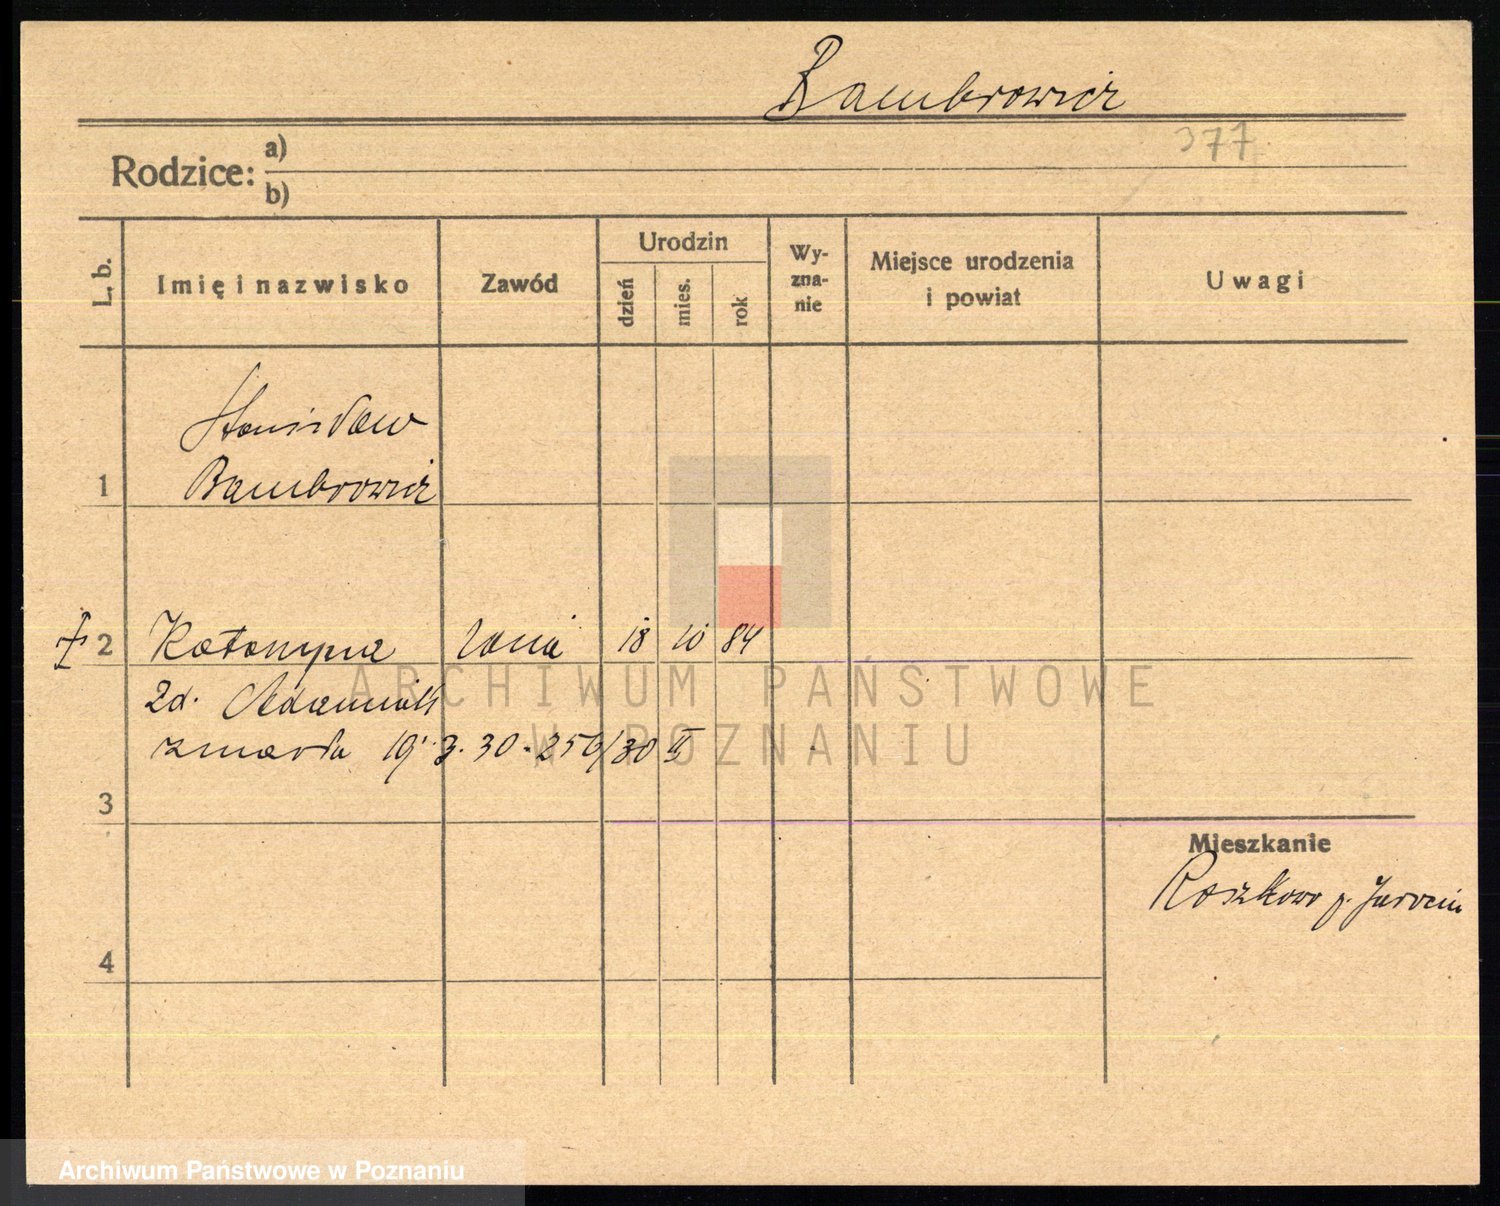 Bambrowicz
377
Rodzice: a)
b)
L. b.
Imię i nazwisko
Zawód
Urodzin
dzień
mies.
rok
Wy-
zna-
nie
Miejsce urodzenia
i powiat
Uwagi
Stanisław
1 Bambrowicz
2 Katarzyna żona 18 10 84
zd. Adamiak
zmarła 19.3.30. 256/30 II
3
4
Mieszkanie
Roszkowo p. Jarocin
ARCHIWUM PAŃSTWOWE
W POZNANIU
Archiwum Państwowe w Poznaniu